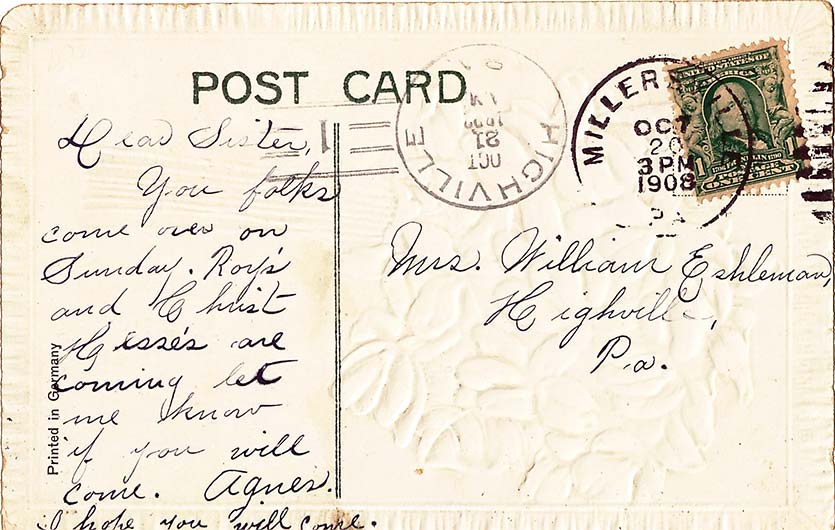 POST CARD
Dear Sister,
You folks
come over on
Sunday. Roy's
and Christ
Hesse's are
coming let
me know
if you will
come. Agnes.
I hope you will come.
Printed in Germany
HIGHVILLE PA.
OCT
21
AM
1908
MILLERSVILLE
OCT
20
3 PM
1908
PA
UNITED STATES OF
AMERICA
1 1
ONE CENT
Mrs. William Eshleman,
Highville,
Pa.